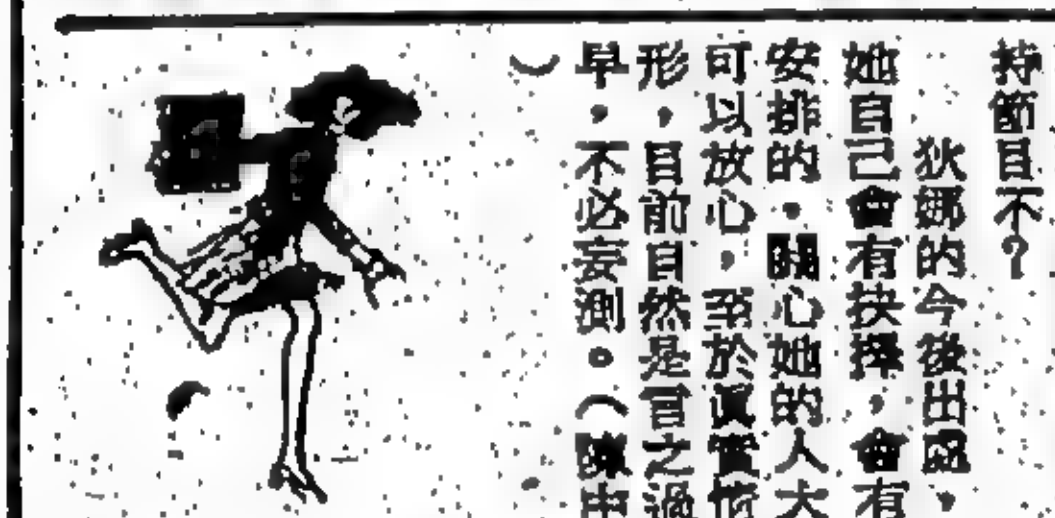 持節目不？
狄娜的今後出處，
她自己會有抉擇，會有
安排的。關心她的人大
可以放心，至於眞實情
形，目前自然是言之過
早，不必妄測。（陳中
）